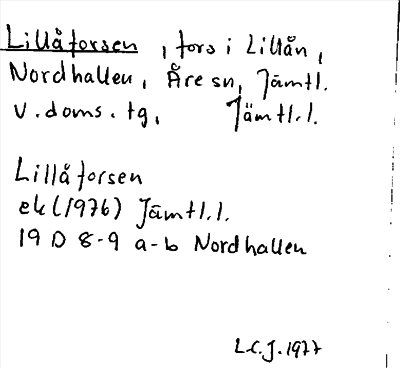 Lillåforsen, fors i Lillån,
Nordhallen, Åre sn, Jämtl.
v. doms. tg, Jämtl. l.
Lillåforsen
ek (1976) Jämtl. l.
19 D 8-9 a-b Nordhallen
L.C.J. 1977